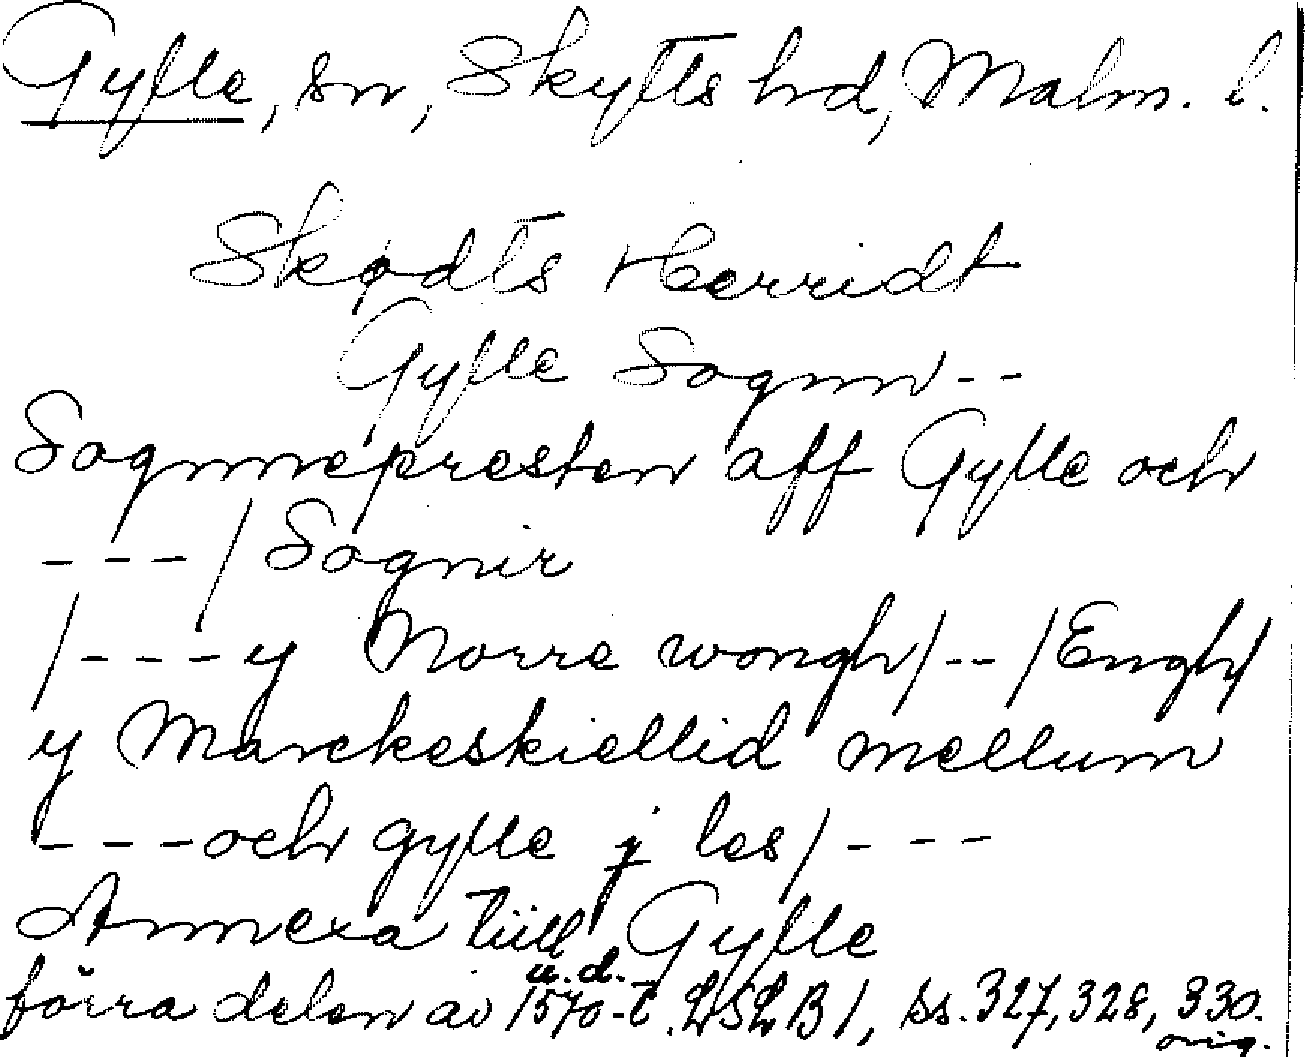 Gylle, sn, Skytts hd, Malm. l.
Skødts Herridt
Gylle Sognn--
Sognnepresten aff Gylle och
---/Sognir
/---y Norre wongh/--/Engh/
y Marckeskiellid mellum
---och gylle j les/---
Annexa tiill Gylle
u.d.
förra delen av 1570-t. LSLB 1, ss. 327, 328, 330.
orig.